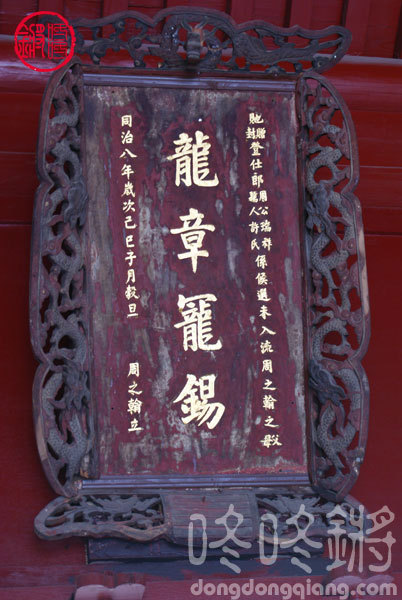 馳贈封登仕郎孺人周公瑞祥許氏係候選未入流周之翰之父母
龍章寵錫
同治八年歲次己巳子月穀旦 周之翰立
咚咚鏘
dongdongqiang.com